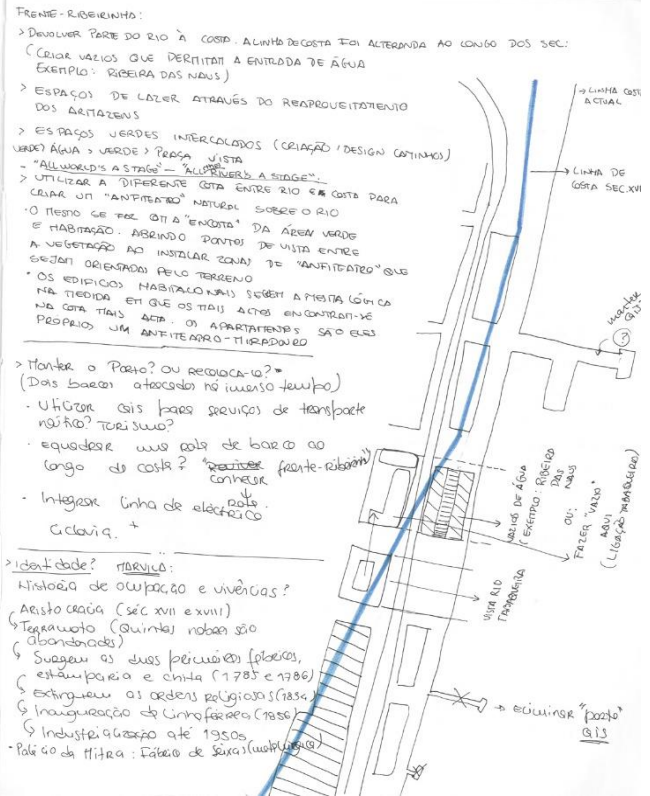 FRENTE-RIBEIRINHA:
> DEVOLVER PARTE DO RIO À COSTA. A LINHA DE COSTA FOI ALTERADA AO LONGO DOS SEC:
(CRIAR VAZIOS QUE PERMITAM A ENTRADA DE ÁGUA
EXEMPLO: RIBEIRA DAS NAUS)
> ESPAÇOS DE LAZER ATRAVÉS DO REAPROVEITAMENTO
DOS ARMAZENS
> ESPAÇOS VERDES INTERCALADOS (CRIAÇÃO / DESIGN CAMINHOS)
VERDE > ÁGUA > VERDE > PRAÇA VISTA
- "ALL WORLD'S A STAGE" - "ALL THE RIVER'S A STAGE":
> UTILIZAR A DIFERENTE COTA ENTRE RIO E COSTA PARA
CRIAR UM "ANFITEATRO" NATURAL SOBRE O RIO
· O MESMO SE FAZ COM A "ENCOSTA" DA ÁREA VERDE
E HABITAÇÃO. ABRINDO PONTOS DE VISTA ENTRE
A VEGETAÇÃO AO INSTALAR ZONAS DE "ANFITEATRO" QUE
SEJAM ORIENTADAS PELO TERRENO
· OS EDIFICIOS HABITACIONAIS SEGUEM A MESMA LÓGICA
NA MEDIDA EM QUE OS MAIS ALTOS ENCONTRAM-SE
NA COTA MAIS ALTA. OS APARTAMENTOS SÃO ELES
PRÓPRIOS UM ANFITEATRO-MIRADOURO
> Manter o Porto? OU RECOLOCA-LO?
(Dois barcos atracados no mesmo tempo)
· Utilizar cais para serviços de transporte
náutico? TURISMO?
· equadrar uma rota de barco ao
longo da costa? "Reviver frente-ribeirinha"
conhecer
· Integrar linha de eléctrico.
rota
Ciclovia. +
> Identidade? MARVILA:
História de ocupação e vivências?
Aristocracia (séc XVII e XVIII)
Terramoto (Quintas nobres são
abandonadas)
Surgem as duas primeiras fábricas,
estamparia e chita (1785 e 1786)
Extinguem as ordens religiosas (1834)
Inauguração da Linha férrea (1856)
Industrialização até 1950s
- Palácio da Mitra: Fábrica de Seixas (metalurgica)
→ LINHA COSTA
ACTUAL
→ LINHA DE
COSTA SEC. XVII
manter
cais
?
VAZIOS DE ÁGUA
(EXEMPLO: RIBEIRA
DAS NAUS
OU:
FAZER "VAZIO"
AQUI
(LIGAÇÃO TABAQUEIRA)
VISTA RIO
TABAQUEIRA
→ eliminar "porto"
cais